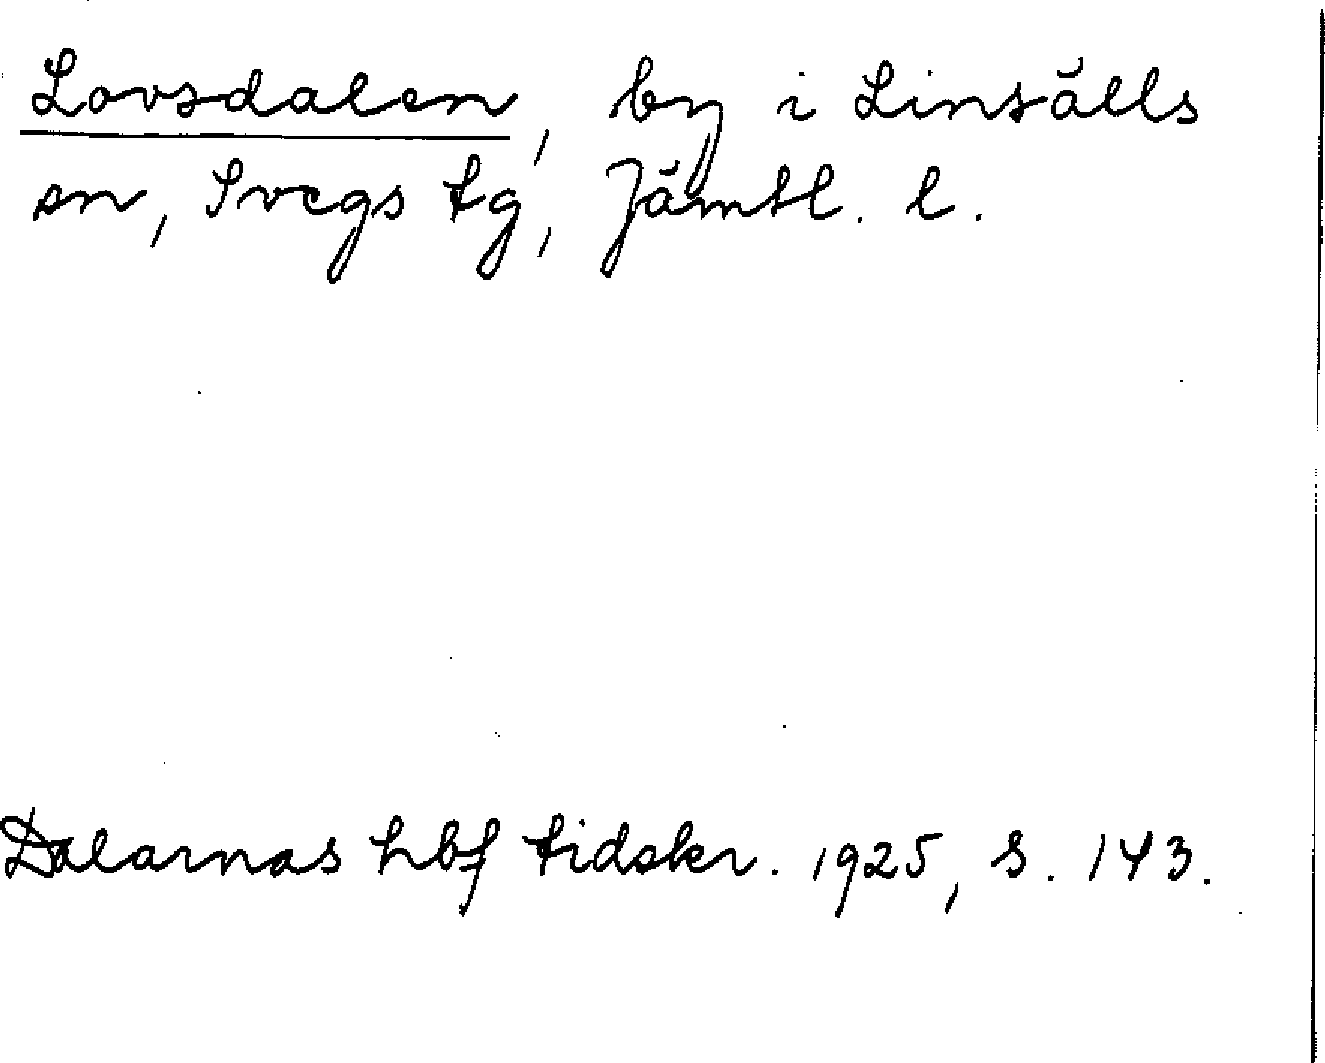 Lovsdalen, by i Linsälls
sn, Svegs tg, Jämtl. l.
Dalarnas hbf tidskr. 1925, s. 143.